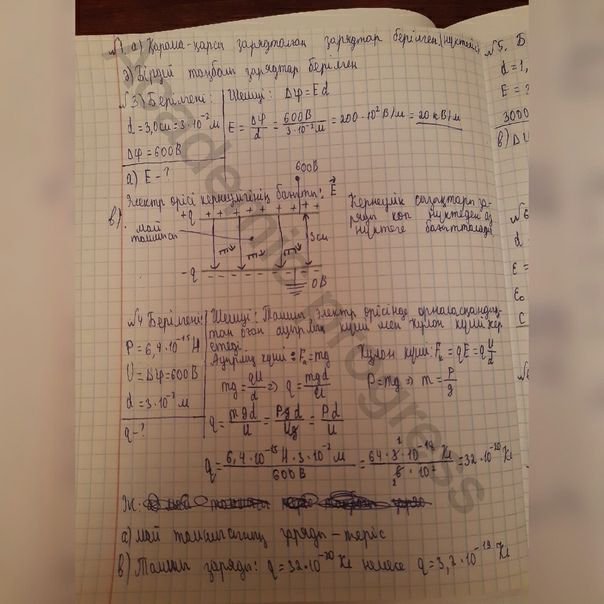 №1. а) Қарама-қарсы зарядталған зарядтар берілген
ә) Бірдей таңбалы зарядтар берілген
№3) Берілгені:
d = 3,0см = 3·10⁻² м
Δφ = 600В
а) E - ?
Шешуі: Δφ = Ed
E = Δφ/d = 600В/3·10⁻²м = 200·10² В/м = 20 кВ/м
600В
Электр өрісі кернеулігінің бағыты: E
в)
+q + + + + + + + + +
май
тамшысы
mg mg
3см
-q
0В
Кернеулік сызықтары за-
ряды көп нүктеден аз
нүктеге бағытталады
№4 Берілгені:
P = 6,4·10⁻¹⁵ Н
U = Δφ = 600В
d = 3·10⁻² м
q - ?
Шешуі: Тамшы электр өрісінде орналасқандық-
тан оған ауырлық күші мен кулон күші әсер
етеді.
Ауырлық күші: Fа = mg
Кулон күші: Fк = qE = q U/d
mg = qU/d => q = mgd/U
P = mg => m = P/g
q = mgd/U = Pgd/Ug = Pd/U
q = 6,4·10⁻¹⁵ Н·3·10⁻² м/600В = 64·3·10⁻¹⁸/6·10² Кл = 32·10⁻²⁰ Кл
Ж:
а) май тамшысының заряды - теріс
в) Тамшы заряды: q = 32·10⁻²⁰ Кл немесе q = 3,2·10⁻¹⁹ Кл
№5. Б
d = 1,
E = 
3000
в) ΔU
№6
d =
E =
E₀
C
Academia progress